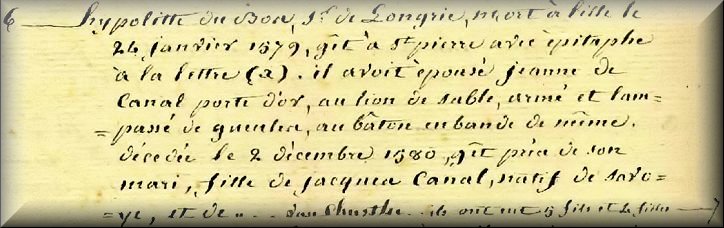 6 hypolitte du Bon, Sr. de Longrie, mort à lille le
24 janvier 1579, gît à st pierre avec épitaphe
à la lettre (a). il avoit épousé jeanne de
Canal porte d'or, au lion de sable, armé et lam=
=passé de gueules, au bâton en bande de même.
décédée le 2 décembre 1580, gît près de son
mari, fille de jacques Canal, natif de savo=
=ye, et de ... ils ont eut 5 fils et 4 filles 7